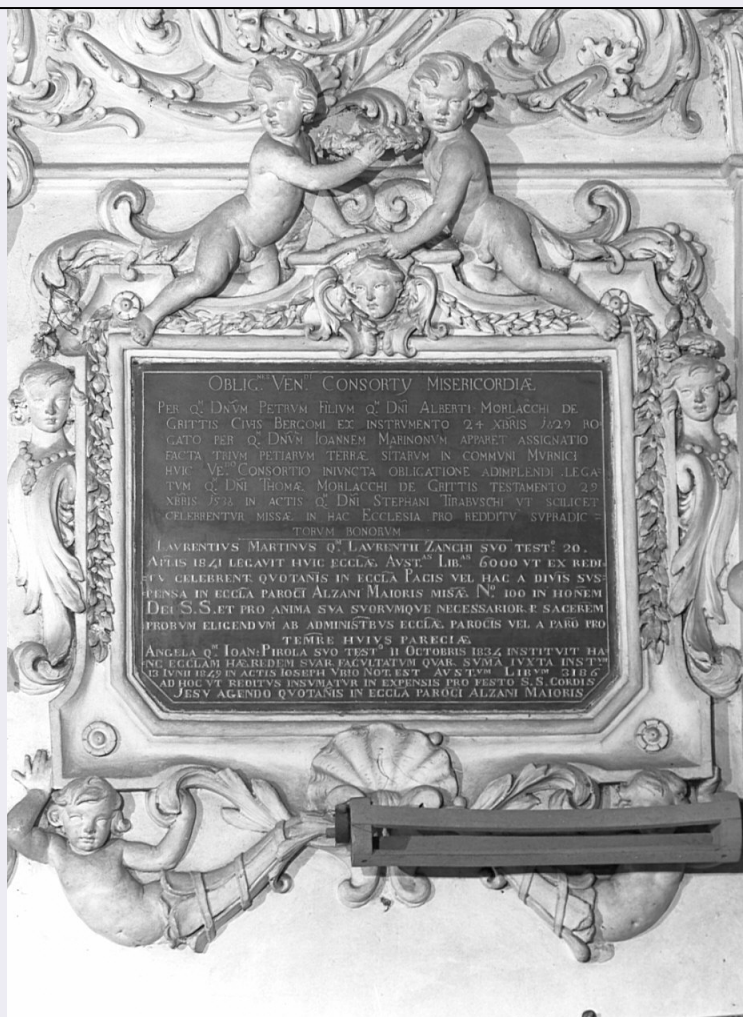 OBLIG.NES VEN.LIS CONSORTY MISERICORDIÆ
PER Q.M DNVM PETRVM FILIVM Q.M DNI ALBERTI MORLACCHI DE
GRITTIS CIVIS BERGOMI EX INSTRVMENTO 24 XBRIS RO=
GATO PER Q.M DNVM IOANNEM MARINONVM APPARET ASSIGNATIO
FACTA TRIVM PETIARVM TERRÆ SITARVM IN COMMVNI MVRNICI
HVIC VE.NDO CONSORTIO INIVNCTA OBLIGATIONE ADIMPLENDI LEGA=
TVM Q.M DNI THOMÆ MORLACCHI DE GRITTIS TESTAMENTO 29
XBRIS IN ACTIS Q.M DNI STEPHANI TIRABVSCHI VT SCILICET
CELEBRENTVR MISSÆ IN HAC ECCLESIA PRO REDDITV SVPRADIC=
TORVM BONORVM
LAVRENTIVS MARTINVS Q.M LAVRENTII ZANCHI SVO TEST.O 20.
APLIS 1821 LEGAVIT HVIC ECCLÆ. AVST.AS LIB.AS 6000 VT EX REDI=
TV CELEBRENT. QVOTANIS IN ECCLA PACIS VEL HAC A DIVIS SVS=
PENSA IN ECCLA PAROCI ALZANI MAIORIS MISÆ. NO 100 IN HONEM
DEI S.S. ET PRO ANIMA SVA SVORVMQVE NECESSARIOR. P. SACEREM
PROBVM ELIGENDVM AB ADMINISTRVS ECCLÆ. PAROCIS VEL A PARO PRO
TEMRE HVIVS PARECIÆ
ANGELA Q.M IOAN: PIROLA SVO TESTO 11 OCTOBRIS 1834 INSTITVIT HA=
NC ECCLAM HÆREDEM SVAR. FACVLTATVM QVAR. SVMA IVXTA INST.TVM
13 IVNII 1849 IN ACTIS IOSEPH VRIO NOT. EST AVST.VM LIB.VM 3186
AD HOC VT REDITVS INSVMATVR IN EXPENSIS PRO FESTO S.S. CORDIS
JESV AGENDO QVOTANIS IN ECCLA PAROCI ALZANI MAIORIS